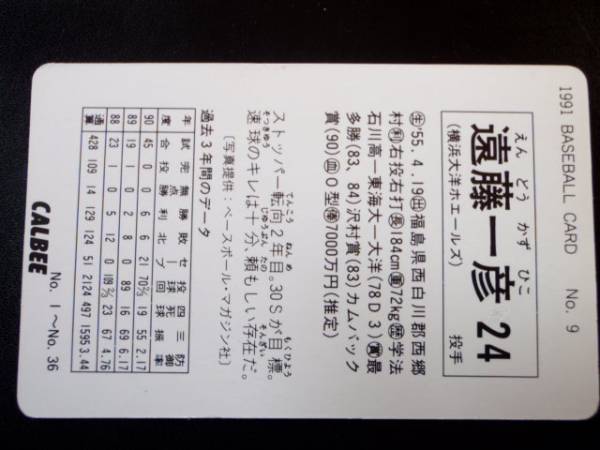 1991 BASEBALL CARD No. 9
えん どう かず ひこ
遠藤一彦 24
(横浜大洋ホエールズ) 投手
生'55.4.19出福島県西白川郡西郷
村利右投右打長184cm重72kg歴学法
石川高―東海大―大洋(78D3)賞最
多勝(83、84)沢村賞(83)カムバック
賞(90)血O型俸7000万円(推定)
てんこう ねんめ もくひょう
ストッパー転向2年目。30Sが目標。
そっきゅう じゅうぶん たの そんざい
速球のキレは十分、頼もしい存在だ。
(写真提供:ベースボール・マガジン社)
過去3年間のデータ
年度 試合 完投 無点勝 勝利 敗北 セーブ 投回 四死球 三振 防御率
90 45 0 0 6 6 21 70⅔ 19 55 2.17
89 19 1 0 2 8 0 89 16 69 6.17
88 23 1 0 5 12 0 109⅔ 23 67 4.76
通算 428 109 14 129 124 51 2124 497 1595 3.44
CALBEE No. 1 ~No. 36